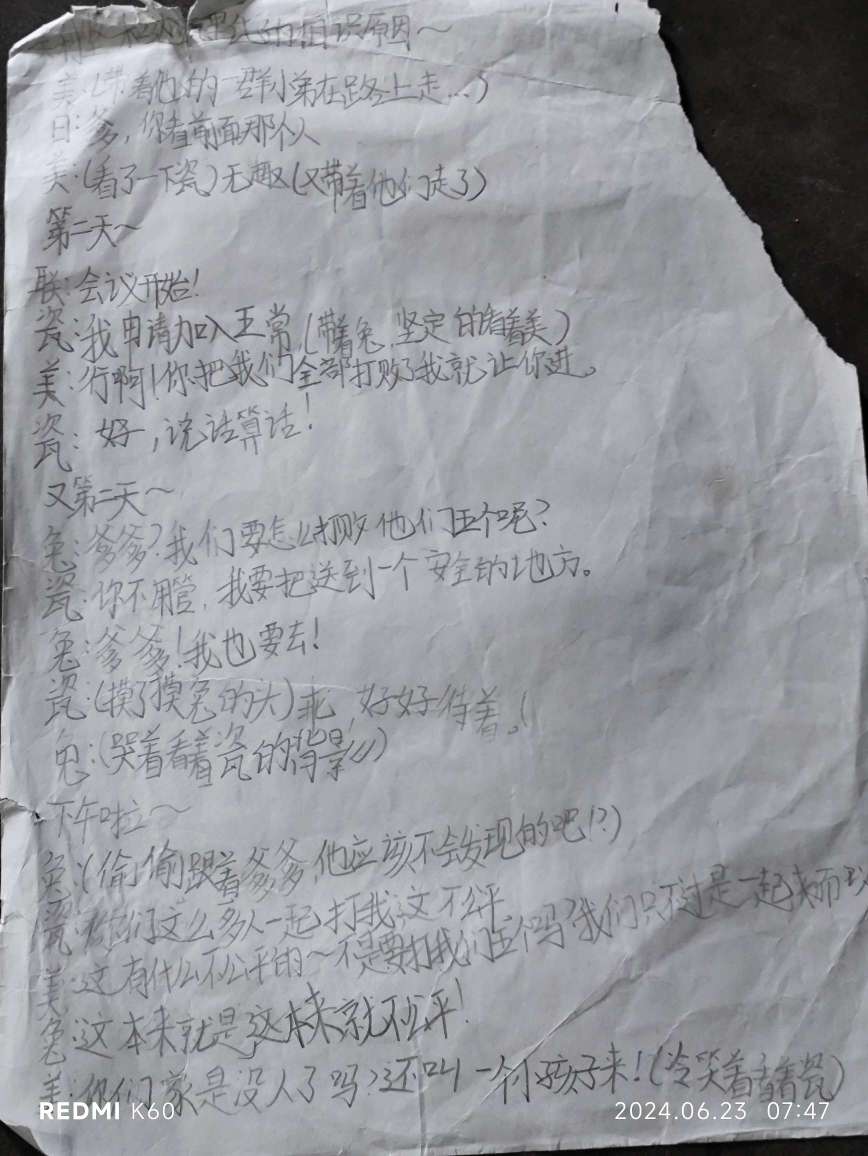 的相识原因～
美:(带着他的一群小弟在路上走…)
日:爹,你看前面那个人
美:(看了一下瓷)无趣(又带着他们走了)
第二天～
联:会议开始!
瓷:我申请加入五常(带着兔,坚定的看着美)
美:行啊!你把我们全部打败了我就让你进。
瓷:好,说话算话!
又第二天～
兔:爹爹?我们要怎么打败他们五个呢?
瓷:你不用管,我要把送到一个安全的地方。
兔:爹爹!我也要去!
瓷:(摸了摸兔的头)乖,好好待着。(
兔:(哭着看着瓷的背影)
下午啦～
兔:(偷偷跟着爹爹,他应该不会发现的吧!?)
瓷:你们这么多人一起打我,这不公平
美:这有什么不公平的～不是要打我们五个吗?我们只不过是一起来而
兔:这本来就是这本来就不公平!
美:你们家是没人了吗?还叫一个小孩子来!(冷哭着看着瓷)
REDMI K60
2024.06.23 07:47